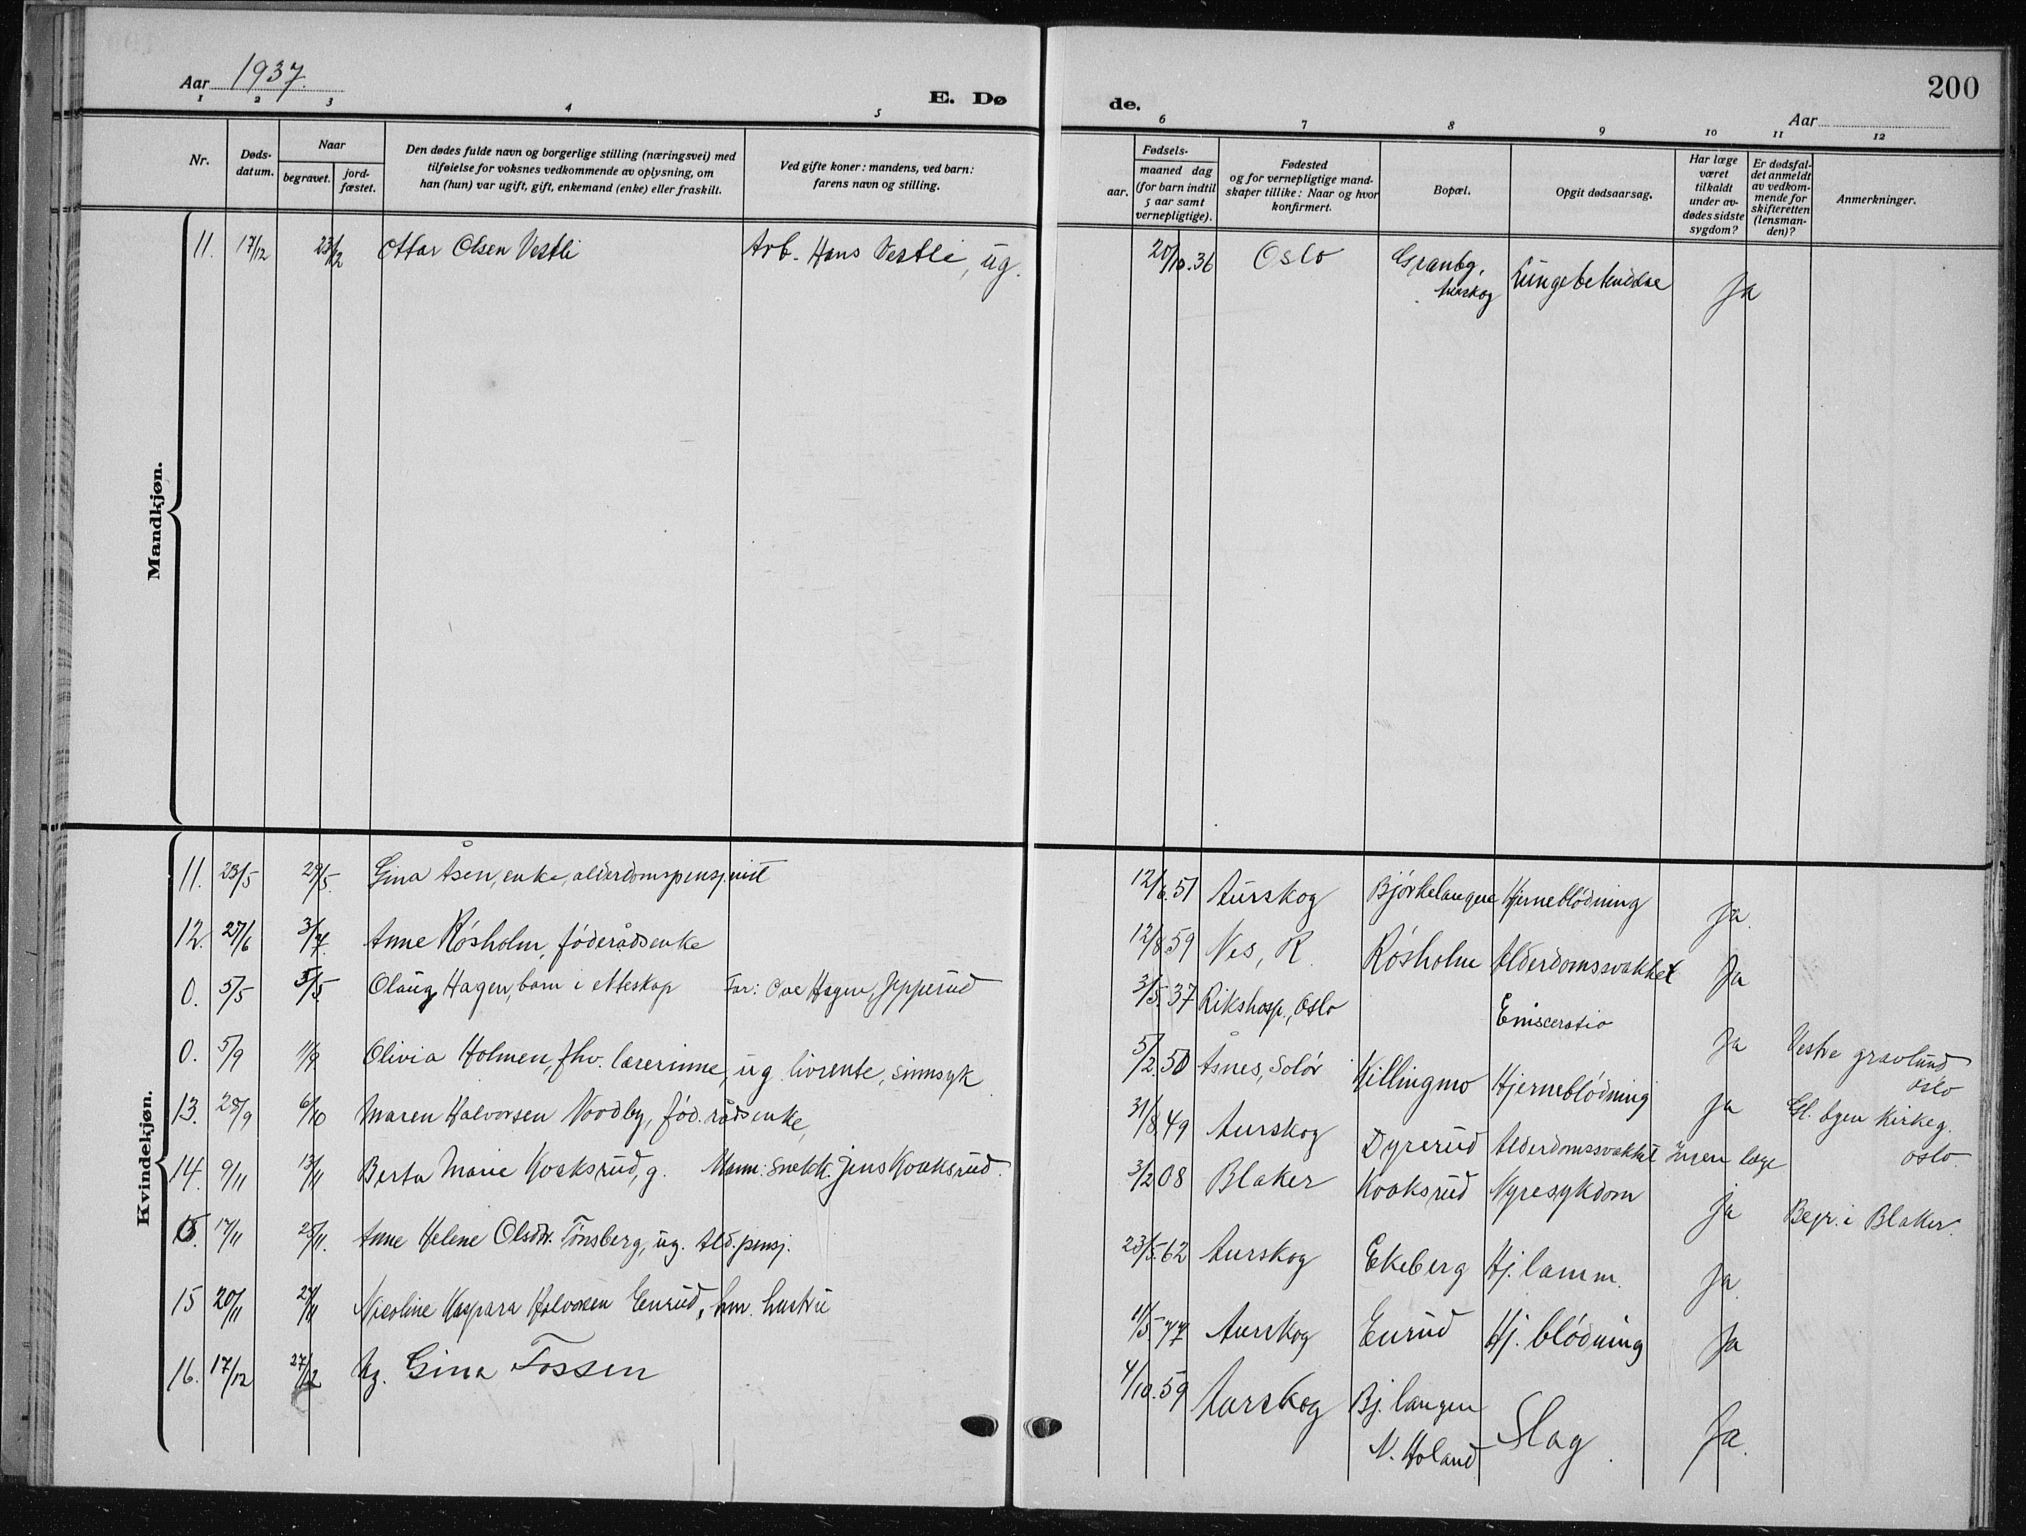 Aar 1937.
E. Dø
de.
200
Aar
1 2 3 4 5 6 7 8 9 10 11 12
Nr.
Døds-
datum.
Naar
begravet.
jord-
fæstet.
Den dødes fulde navn og borgerlige stilling (næringsvei) med
tilføielse for voksnes vedkommende av oplysning, om
han (hun) var ugift, gift, enkemand (enke) eller fraskilt.
Ved gifte koner: mandens, ved barn:
farens navn og stilling.
Fødsels-
aar.
maaned dag
(for barn indtil
5 aar samt
vernepligtige).
Fødested
og for vernepligtige mand-
skaper tillike: Naar og hvor
konfirmert.
Bopæl.
Opgit dødsaarsag.
Har læge
været
tilkaldt
under av-
dødes sidste
sygdom?
Er dødsfal-
det anmeldt
av vedkom-
mende for
skifteretten
(lensman-
den)?
Anmerkninger.
Mandkjøn.
11. 17/12 23/12 Ottar Olsen Vestli Arb. Hans Vestli, ug. 20/10.36 Oslo Granbg, Lungebetendelse Ja
Aurskog
Kvindekjøn.
11. 23/5 29/5. Gina Åsen, enke, alderdomspensjonist 12/6.51 Aurskog Bjørkelangen Hjerneblødning Ja.
12. 27/6 3/7. Anne Røsholm, føderådsenke 12/8 59 Nes, R. Røsholm Alderdomssvakhet Ja
0. 5/5 5/5 Olaug Hagen, barn i ekteskap Far: Hagen, Jepperud 3/5.37 Rikshosp., Oslo Ja Vestre gravlund
Oslo
0. 5/9 11/9 Olivia Holmen, fhv. lærerinne, ug. livrente, sinnsyk 5/2.50 Åsnes, Solør Killingmo Hjerneblødning Ja Gl. byen Kirkeg.
Oslo.
13. 28/9 6/10 Maren Halvorsen Nordby, fød.rådsenke, 31/8.49 Aurskog Dyrerud Alderdomssvakhet Ingen læge
14. 9/11 13/11 Berta Marie Kvaksrud, g. Mann: Snekk. Jens Kvaksrud. 3/2 08 Blaker Kvaksrud Nyresykdom Ja Begr. i Blaker.
17/11 25/11. Anne Helene Olsdtr. Tønsberg, ug. Ald.pensj. 23/5.62 Aurskog Ekeberg Hj. lamm. Ja.
15 20/11 27/11 Nicoline Kaspara Halvorsen Enrud, hm. hustru 11/5.77 Aurskog Enrud Hj. blødning Ja
16. 17/12 27/12 Ug. Gina Fossen 4/10.59 Aurskog Bj. langen Slag. Ja.
N. Høland